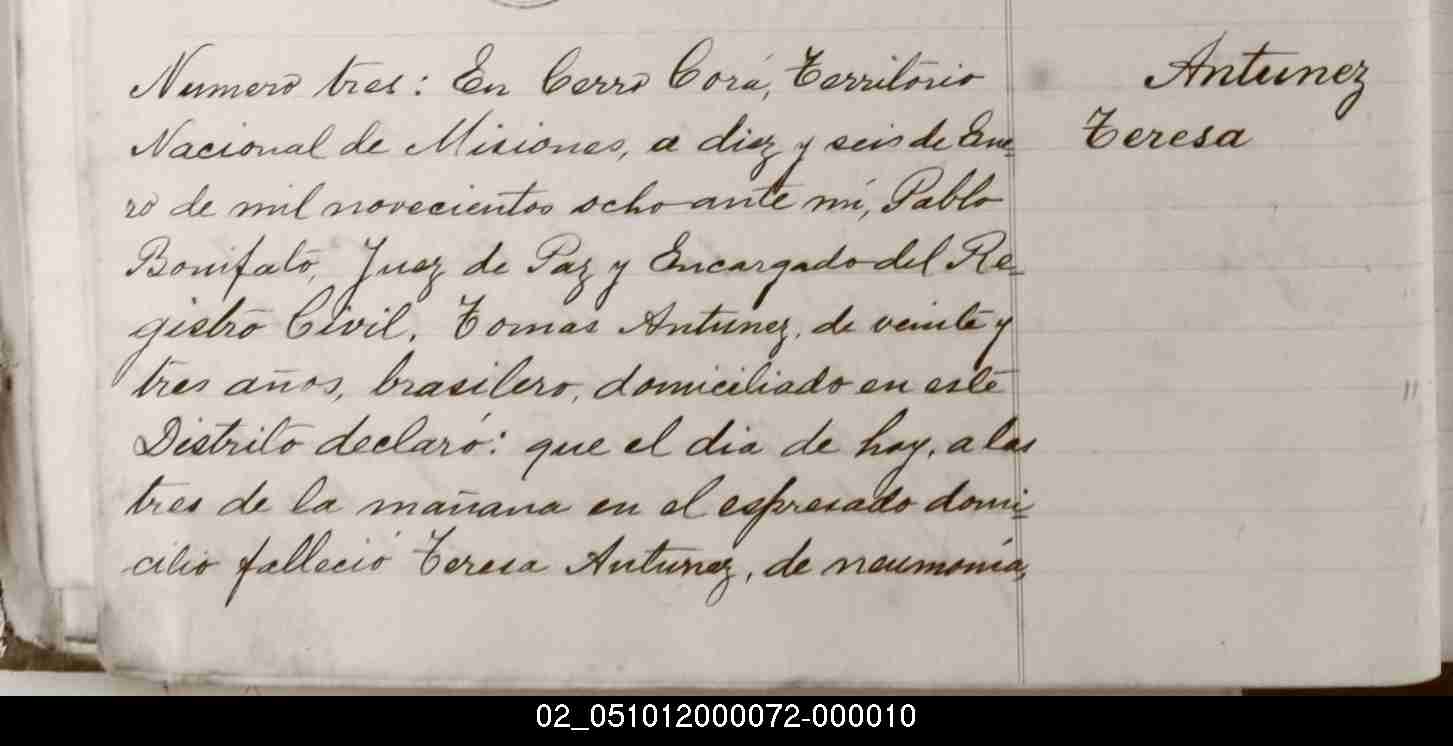 Numero tres: En Cerro Corá, Territorio
Nacional de Misiones, a diez y seis de Ene=
ro de mil novecientos ocho ante mí, Pablo
Bonifato, Juez de Paz y Encargado del Re=
gistro Civil, Tomas Antunez, de veinte y
tres años, brasilero, domiciliado en este
Distrito declaró: que el dia de hoy, a las
tres de la mañana en el espresado domi=
cilio falleció Teresa Antunez, de neumonía,
Antunez
Teresa
02_051012000072-000010